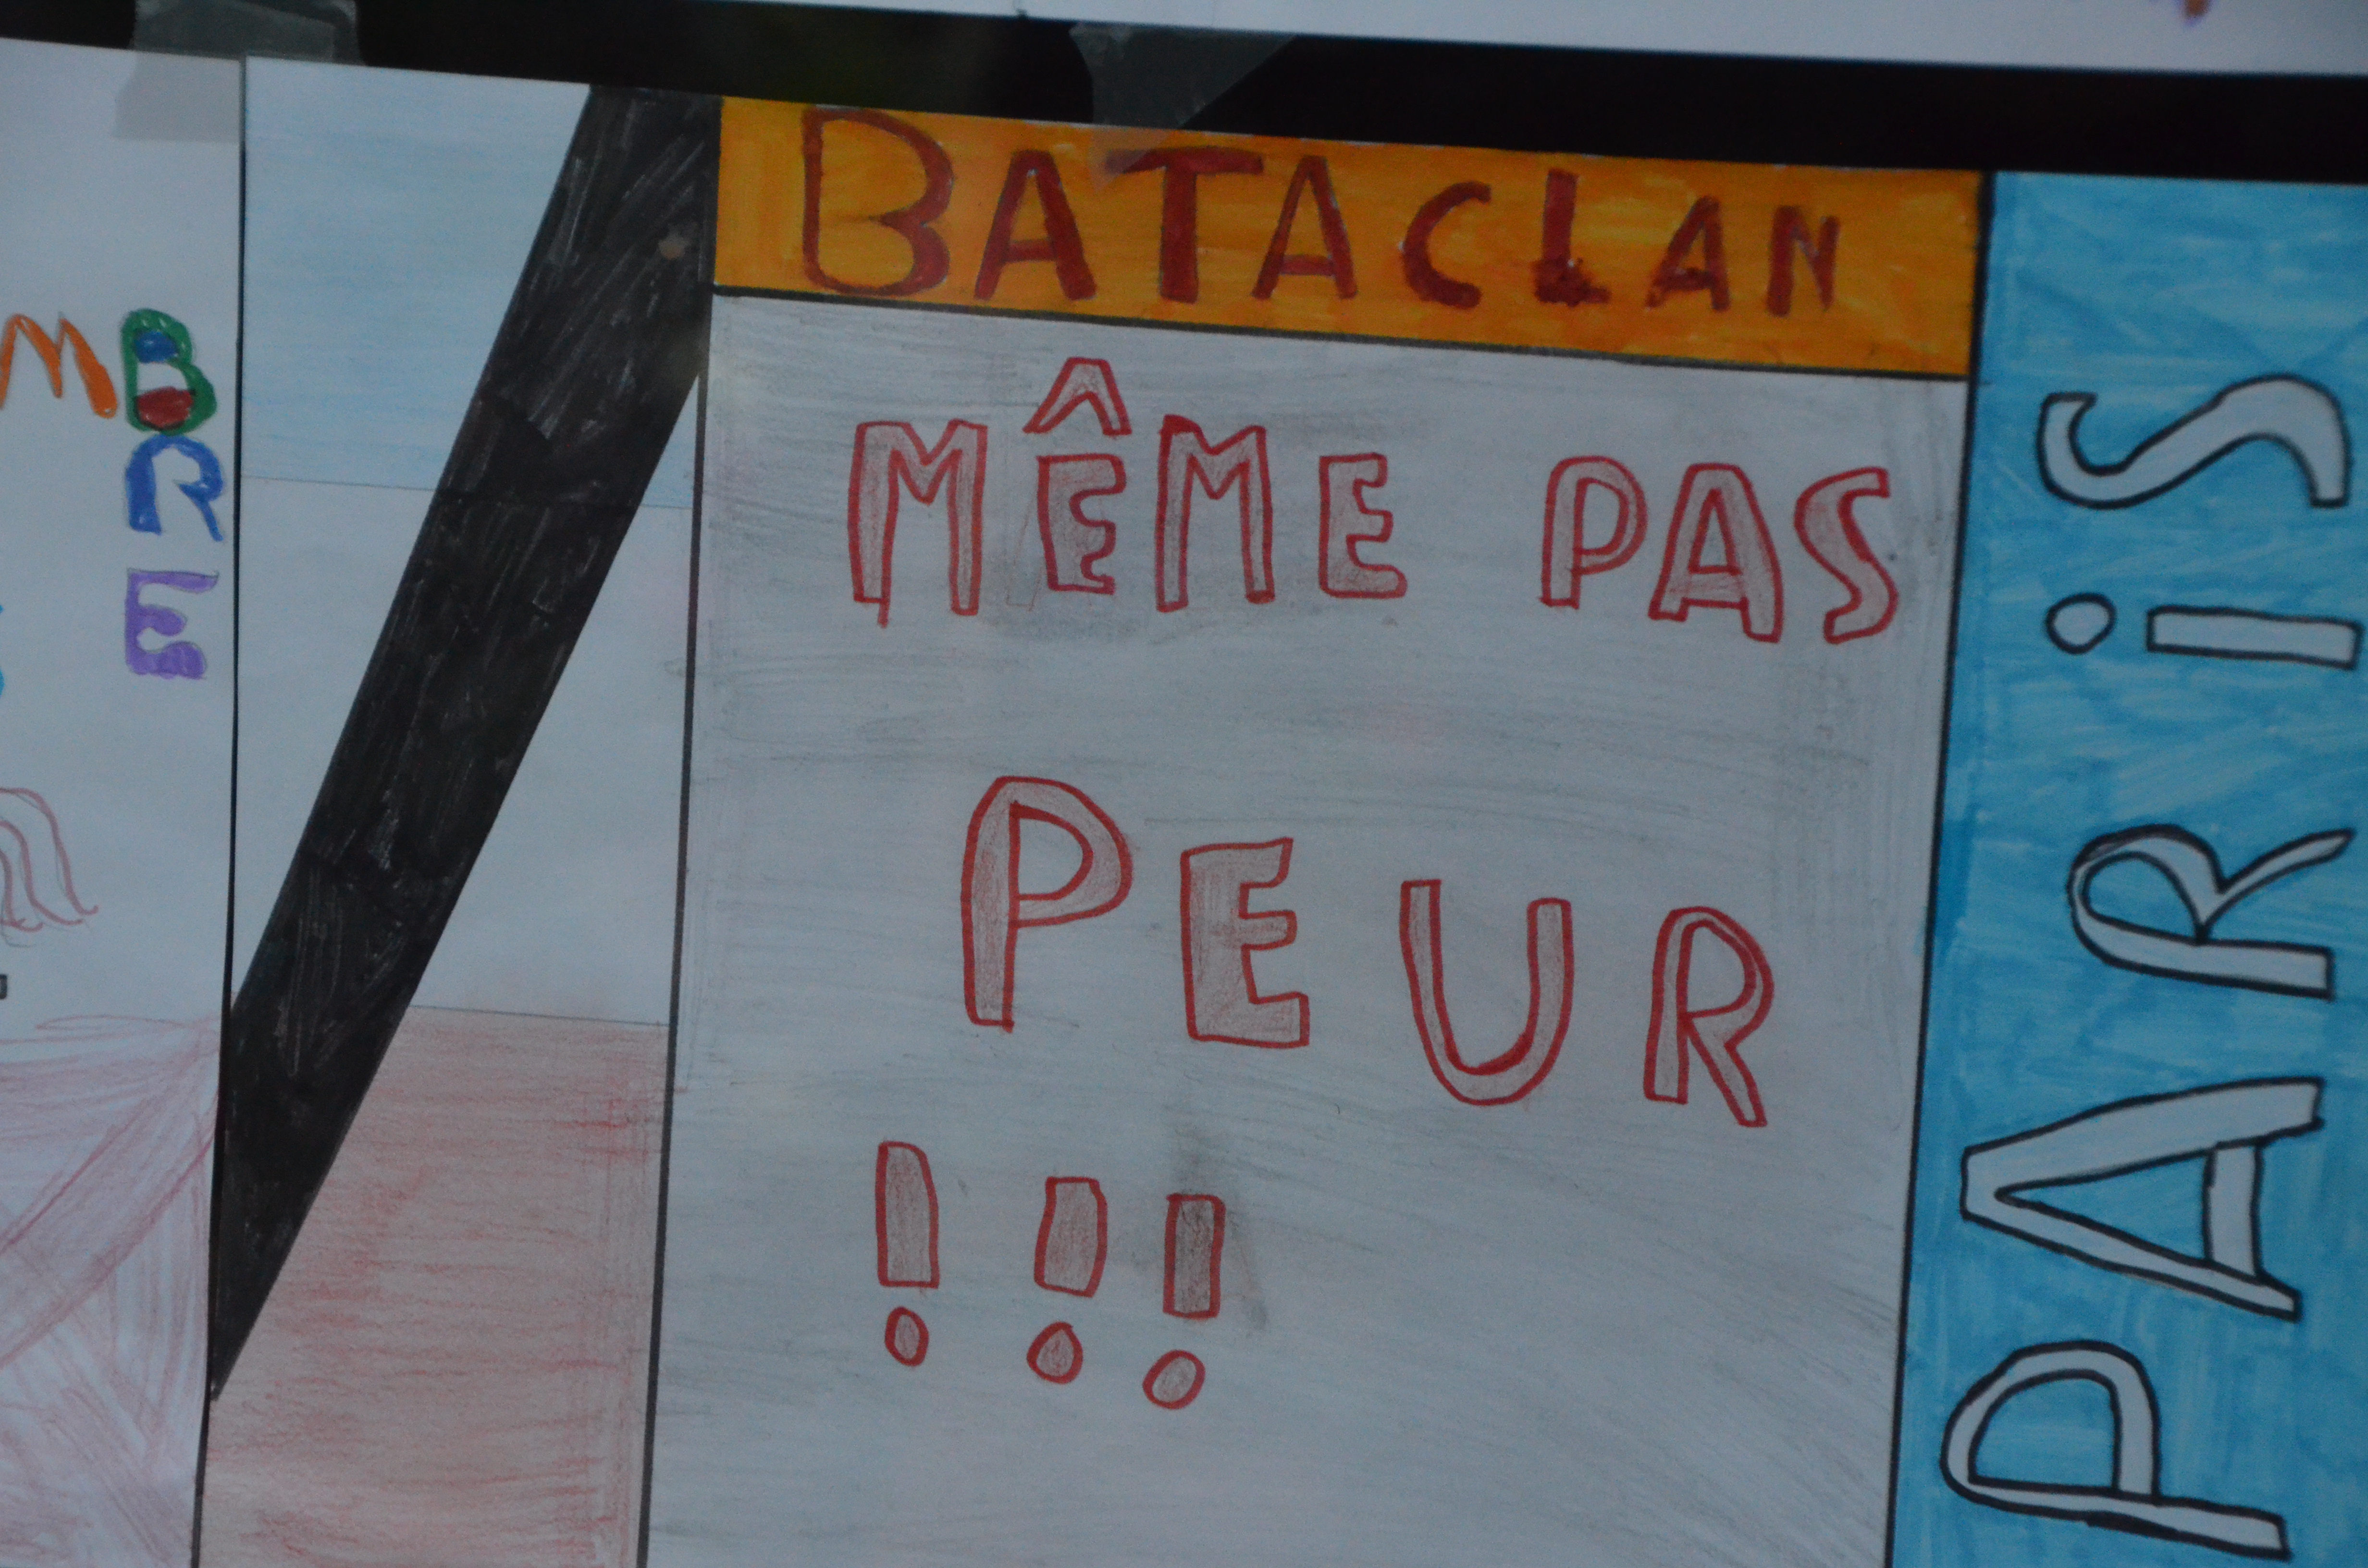 MBRE
BATACLAN
MÊME PAS
PEUR
!!!
PARiS